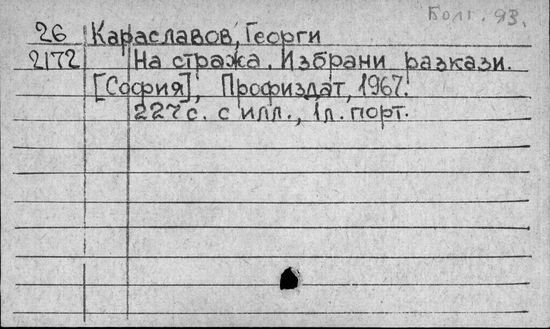 Болг. 93.
26 Караславов, Георги
2172 На стража. Избрани разкази.
[София], Профиздат, 1967.
227 с. с илл., 1 л. порт.